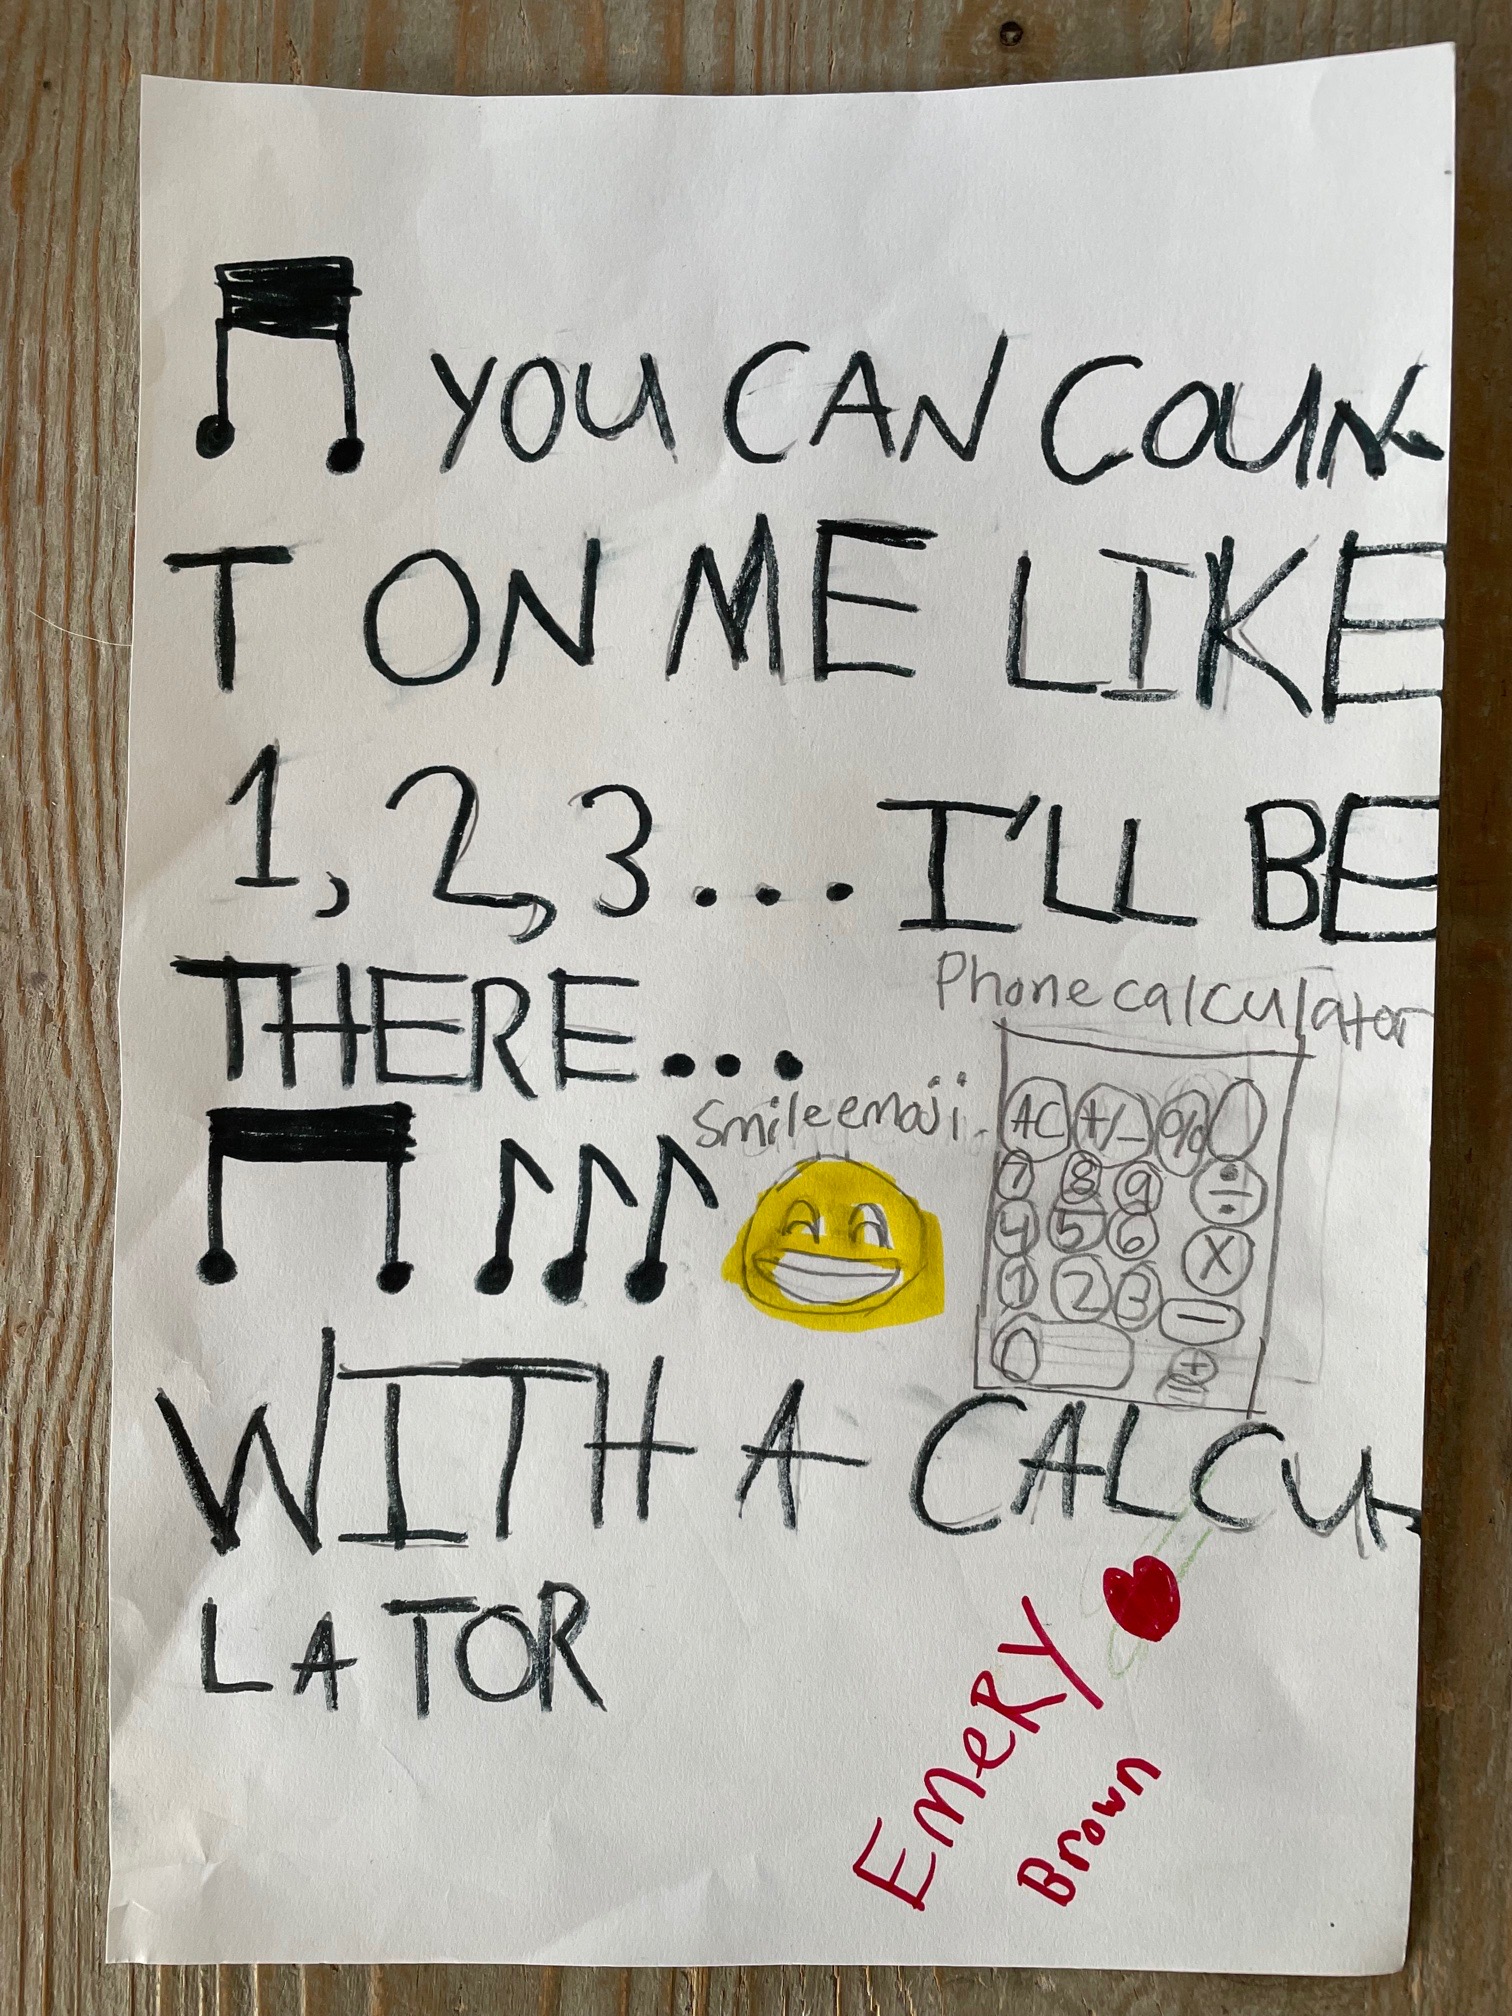 YOU CAN COUN-
T ON ME LIKE
1, 2, 3... I'LL BE
THERE...
Phone calculator
Smile emoji
AC +/- %
7 8 9 ÷
4 5 6 X
1 2 3 -
0 +
=
WITH A CALCU-
LATOR
EMeRY
Brown